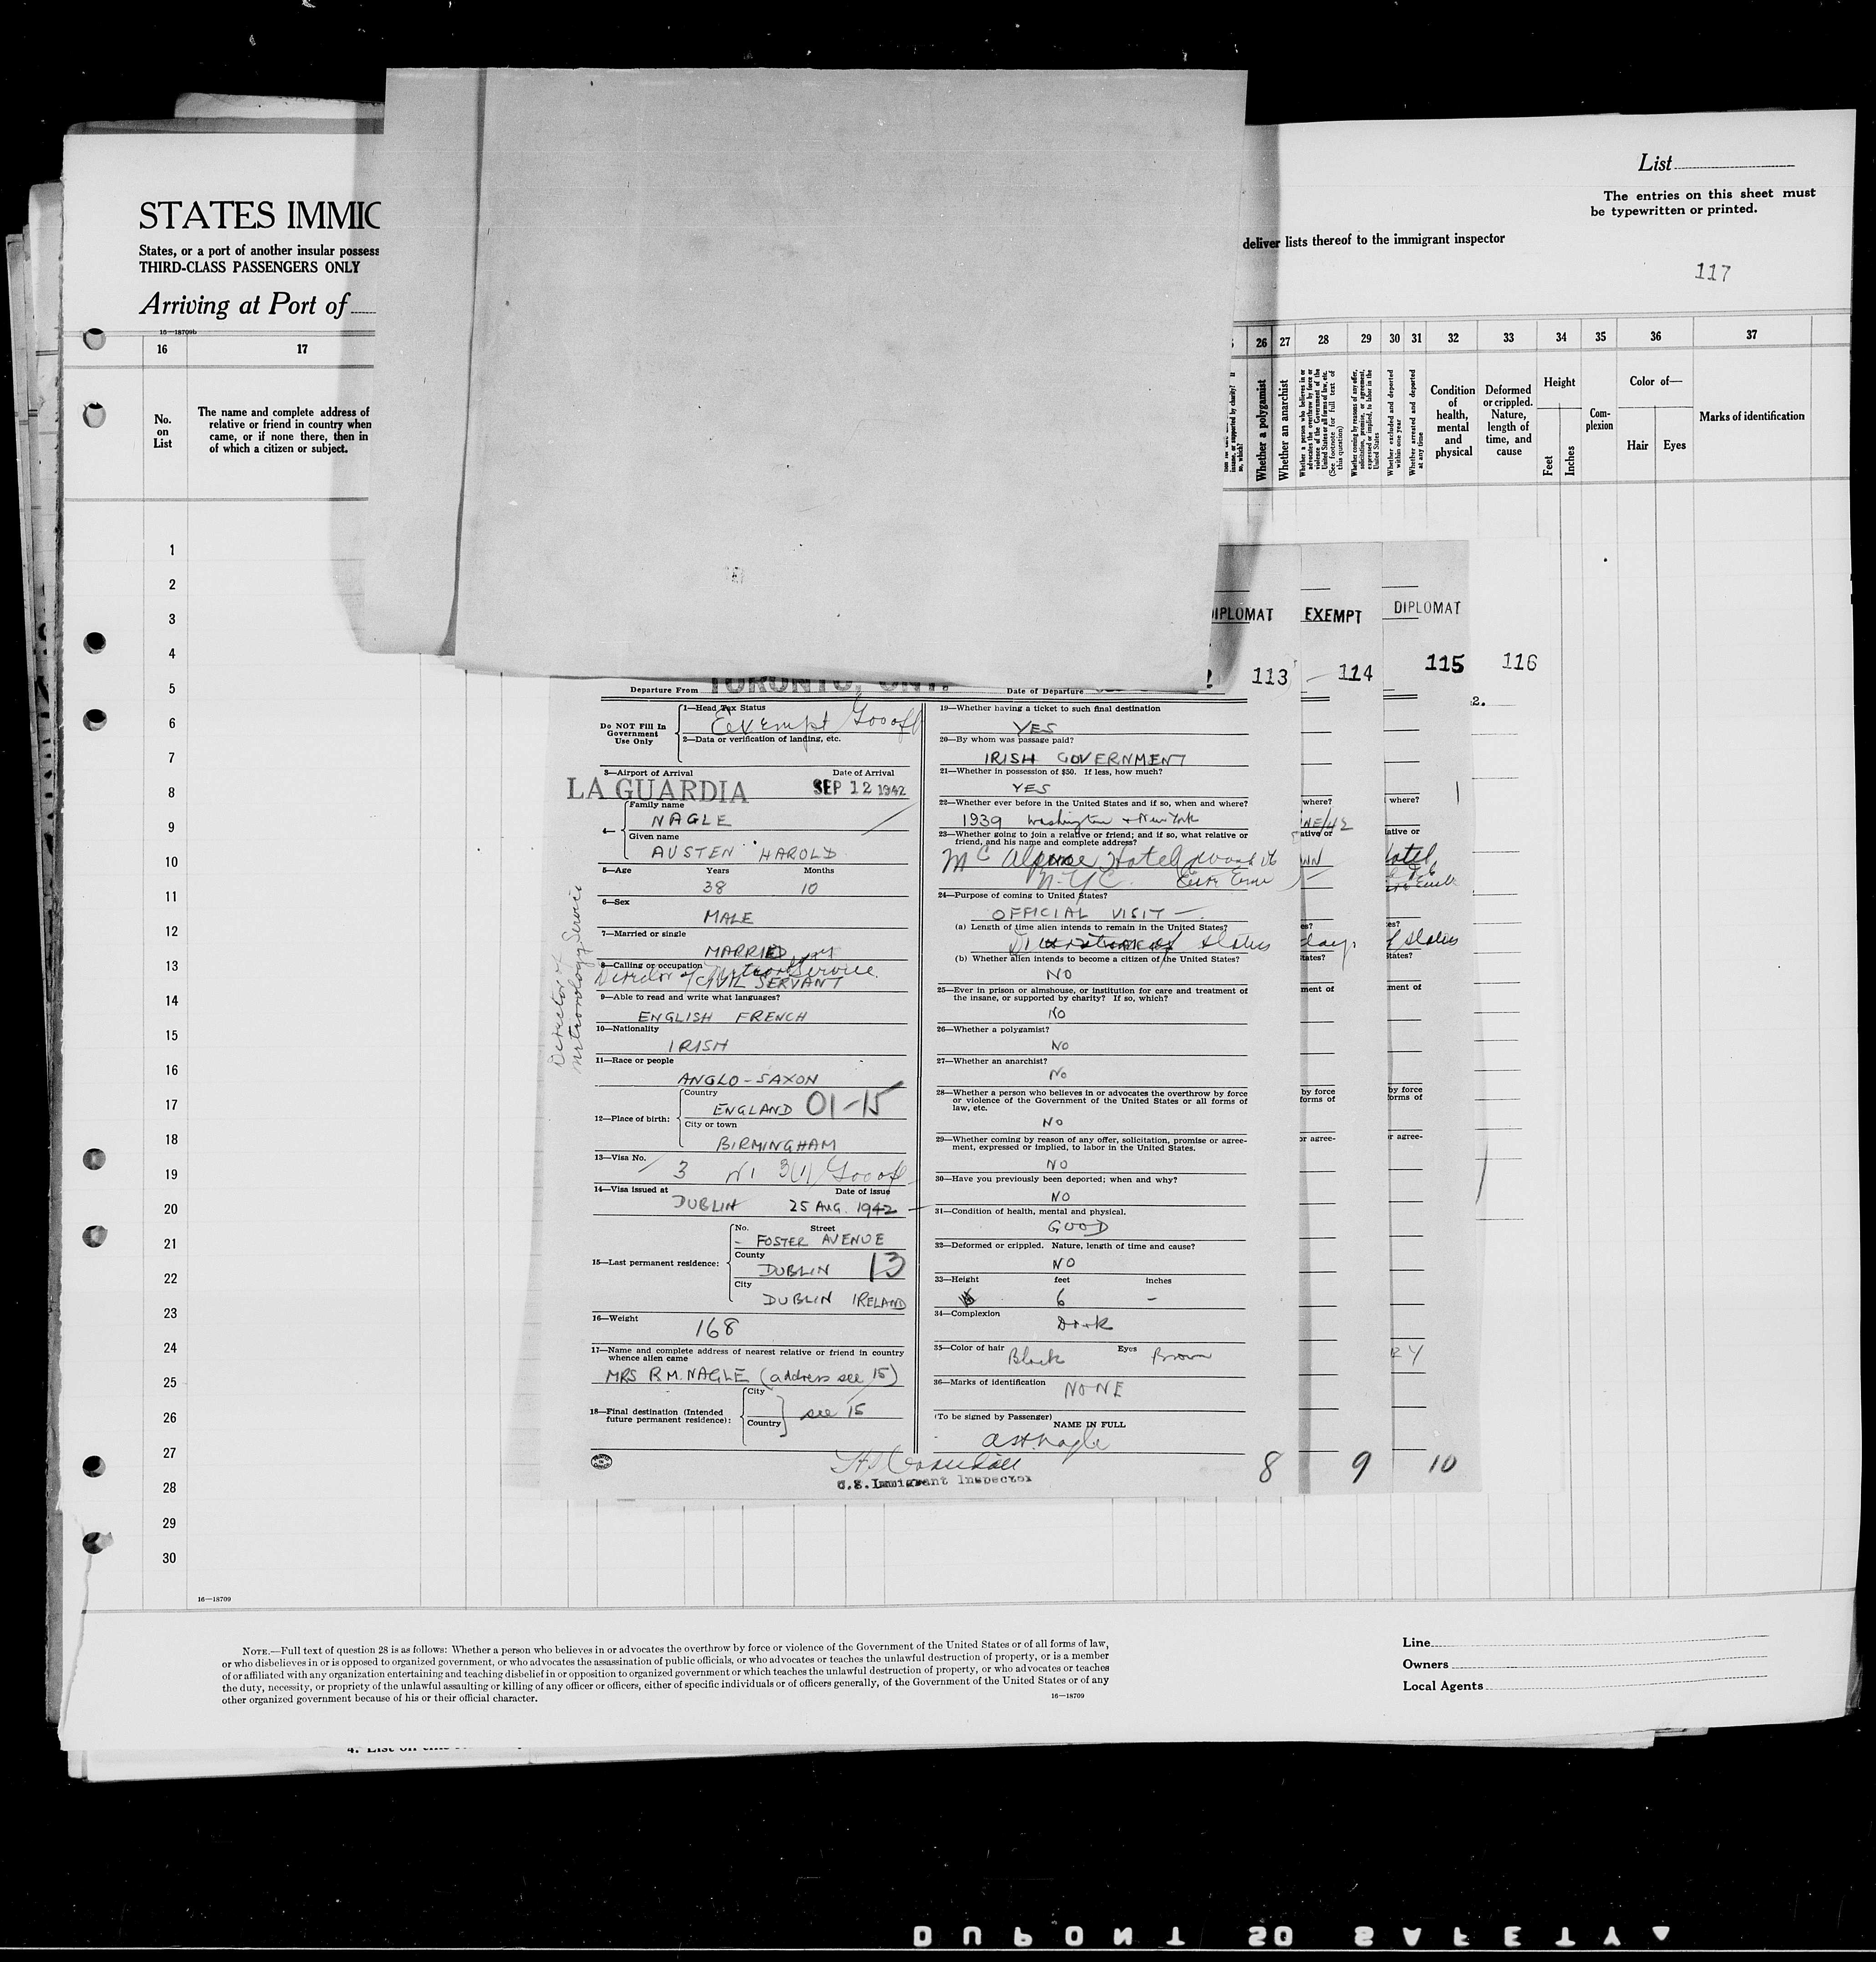 List
The entries on this sheet must
be typewritten or printed.
STATES IMMIG
States, or a port of another insular possess
THIRD-CLASS PASSENGERS ONLY
deliver lists thereof to the immigrant inspector
117
Arriving at Port of
16—18709b
16 17 26 27 28 29 30 31 32 33 34 35 36 37
No.
on
List
The name and complete address of
relative or friend in country when
came, or if none there, then in
of which a citizen or subject.
Whether a polygamist
Whether an anarchist
Whether a person who believes in or
advocates the overthrow by force or
violence of the Government of the
United States or all forms of law, etc.
(See footnote for full text of
this question)
Whether coming by reasons of any offer,
solicitation, promise, or agreement,
expressed or implied, to labor in the
United States
Whether excluded and deported
within one year
Whether arrested and deported
at any time
Condition
of
health,
mental
and
physical
Deformed
or crippled.
Nature,
length of
time, and
cause
Height
Feet
Inches
Com-
plexion
Color of—
Hair
Eyes
Marks of identification
1
2
3
4
5
6
7
8
9
10
11
12
13
14
15
16
17
18
19
20
21
22
23
24
25
26
27
28
29
30
DIPLOMAT EXEMPT DIPLOMAT
113 114 115 116
2.
Departure From TORONTO, ONT. Date of Departure
Do NOT Fill In
Government
Use Only
1—Head Tax Status
Exempt
2—Data or verification of landing, etc.
3—Airport of Arrival Date of Arrival
LA GUARDIA SEP 12 1942
4—
Family name
NAGLE
Given name
AUSTEN HAROLD
5—Age Years Months
38 10
6—Sex
MALE
7—Married or single
MARRIED
8—Calling or occupation
Director of Service
CIVIL SERVANT
Director of
Service
9—Able to read and write what languages?
ENGLISH FRENCH
10—Nationality
IRISH
11—Race or people
ANGLO-SAXON
12—Place of birth:
Country
ENGLAND 01-15
City or town
BIRMINGHAM
13—Visa No.
3
14—Visa issued at Date of issue
DUBLIN 25 AUG. 1942
15—Last permanent residence:
No. Street
- FOSTER AVENUE
County
DUBLIN 13
City
DUBLIN IRELAND
16—Weight
168
17—Name and complete address of nearest relative or friend in country
whence alien came
MRS R.M. NAGLE (address see 15)
18—Final destination (Intended
future permanent residence):
City
Country
see 15
19—Whether having a ticket to such final destination
YES
20—By whom was passage paid?
IRISH GOVERNMENT
21—Whether in possession of $50. If less, how much?
YES
22—Whether ever before in the United States and if so, when and where?
1939 Washington + New York
23—Whether going to join a relative or friend; and if so, what relative or
friend, and his name and complete address?
Mc Alpine Hotel
N.Y.C.
24—Purpose of coming to United States?
OFFICIAL VISIT —
(a) Length of time alien intends to remain in the United States?
of status
(b) Whether alien intends to become a citizen of the United States?
NO
25—Ever in prison or almshouse, or institution for care and treatment of
the insane, or supported by charity? If so, which?
NO
26—Whether a polygamist?
NO
27—Whether an anarchist?
No
28—Whether a person who believes in or advocates the overthrow by force
or violence of the Government of the United States or all forms of
law, etc.
NO
29—Whether coming by reason of any offer, solicitation, promise or agree-
ment, expressed or implied, to labor in the United States.
NO
30—Have you previously been deported; when and why?
NO
31—Condition of health, mental and physical.
GOOD
32—Deformed or crippled. Nature, length of time and cause?
NO
33—Height feet inches
6 -
34—Complexion
Dark
35—Color of hair Eyes
Black Brown
36—Marks of identification
NONE
(To be signed by Passenger)
NAME IN FULL
A H Nagle
U.S. Immigrant Inspector
8 9 10
where?
ative or
days
tates?
ment of
by force
forms of
or agree-
where?
lative or
Hotel
es?
of status
States?
ment of
by force
forms of
r agree-
16—18709
NOTE.—Full text of question 28 is as follows: Whether a person who believes in or advocates the overthrow by force or violence of the Government of the United States or of all forms of law,
or who disbelieves in or is opposed to organized government, or who advocates the assassination of public officials, or who advocates or teaches the unlawful destruction of property, or is a member
of or affiliated with any organization entertaining and teaching disbelief in or opposition to organized government or which teaches the unlawful destruction of property, or who advocates or teaches
the duty, necessity, or propriety of the unlawful assaulting or killing of any officer or officers, either of specific individuals or of officers generally, of the Government of the United States or of any
other organized government because of his or their official character.
16—18709
Line
Owners
Local Agents
DUPONT 50 SAFETY